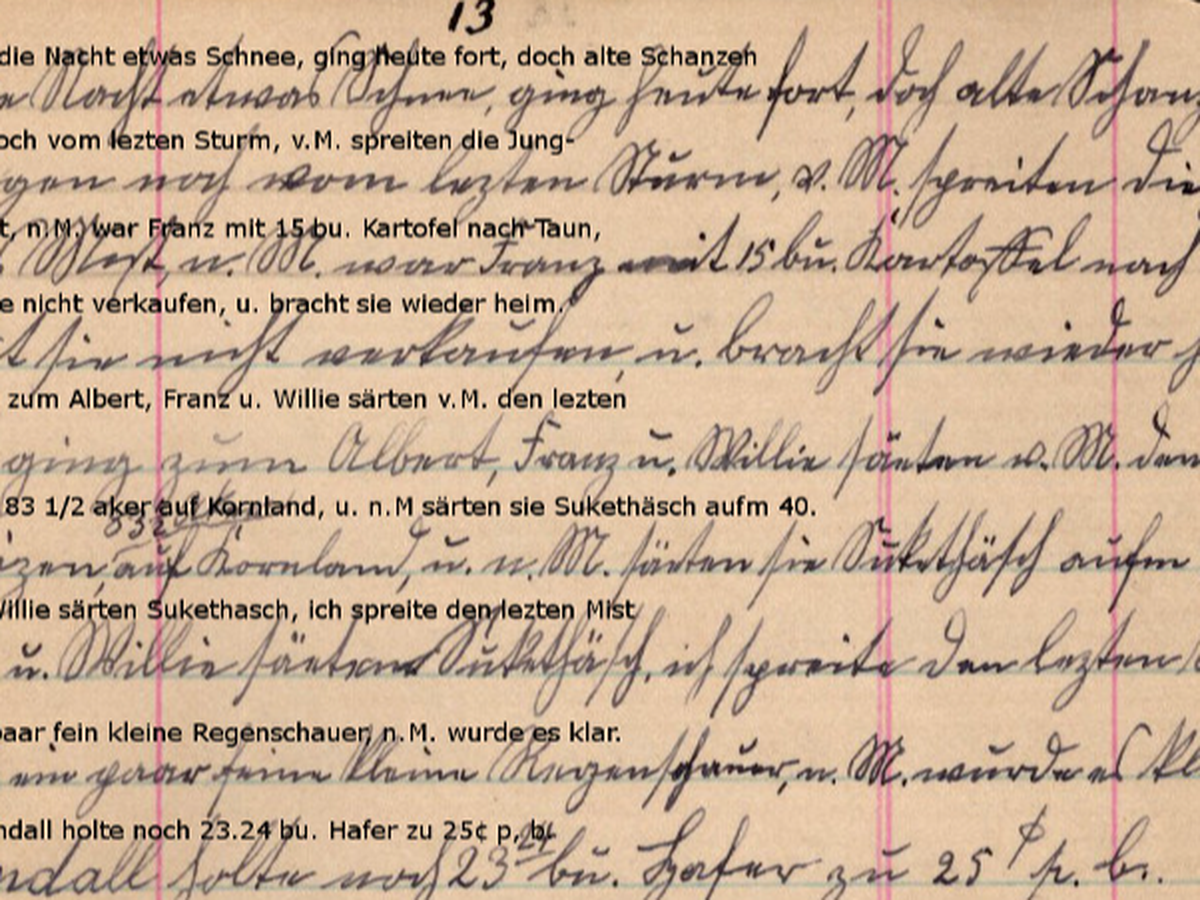 13
die Nacht etwas Schnee, ging heute fort, doch alte Schanzen
e Nacht etwas Schnee, ging heute fort, doch alte Schan
och vom lezten Sturm, v.M. spreiten die Jung-
gen noch vom lezten Sturm, v. M. spreiten die
t, n.M. war Franz mit 15 bu. Kartofel nach Taun,
Mest, n. M. war Franz mit 15 bu. Kartoffel nach
e nicht verkaufen, u. bracht sie wieder heim.
t sie nicht verkaufen, u. bracht sie wieder h
zum Albert, Franz u. Willie särten v.M. den lezten
ging zum Albert, Franz u. Willie säeten v. M. den
83 1/2 aker auf Kornland, u. n.M särten sie Sukethäsch aufm 40.
izen, auf Kornland, u. n. M. säeten sie Sukethäsch aufm
Willie särten Sukethasch, ich spreite den lezten Mist
u. Willie säeten Sukethäsch, ich spreite den lezten
paar fein kleine Regenschauer, n.M. wurde es klar.
ein paar feine kleine Regenschauer, n. M. wurde es kl
ndall holte noch 23.24 bu. Hafer zu 25¢ p, b.
ndall holte noch 23 24 bu. Hafer zu 25 ¢ p. b.